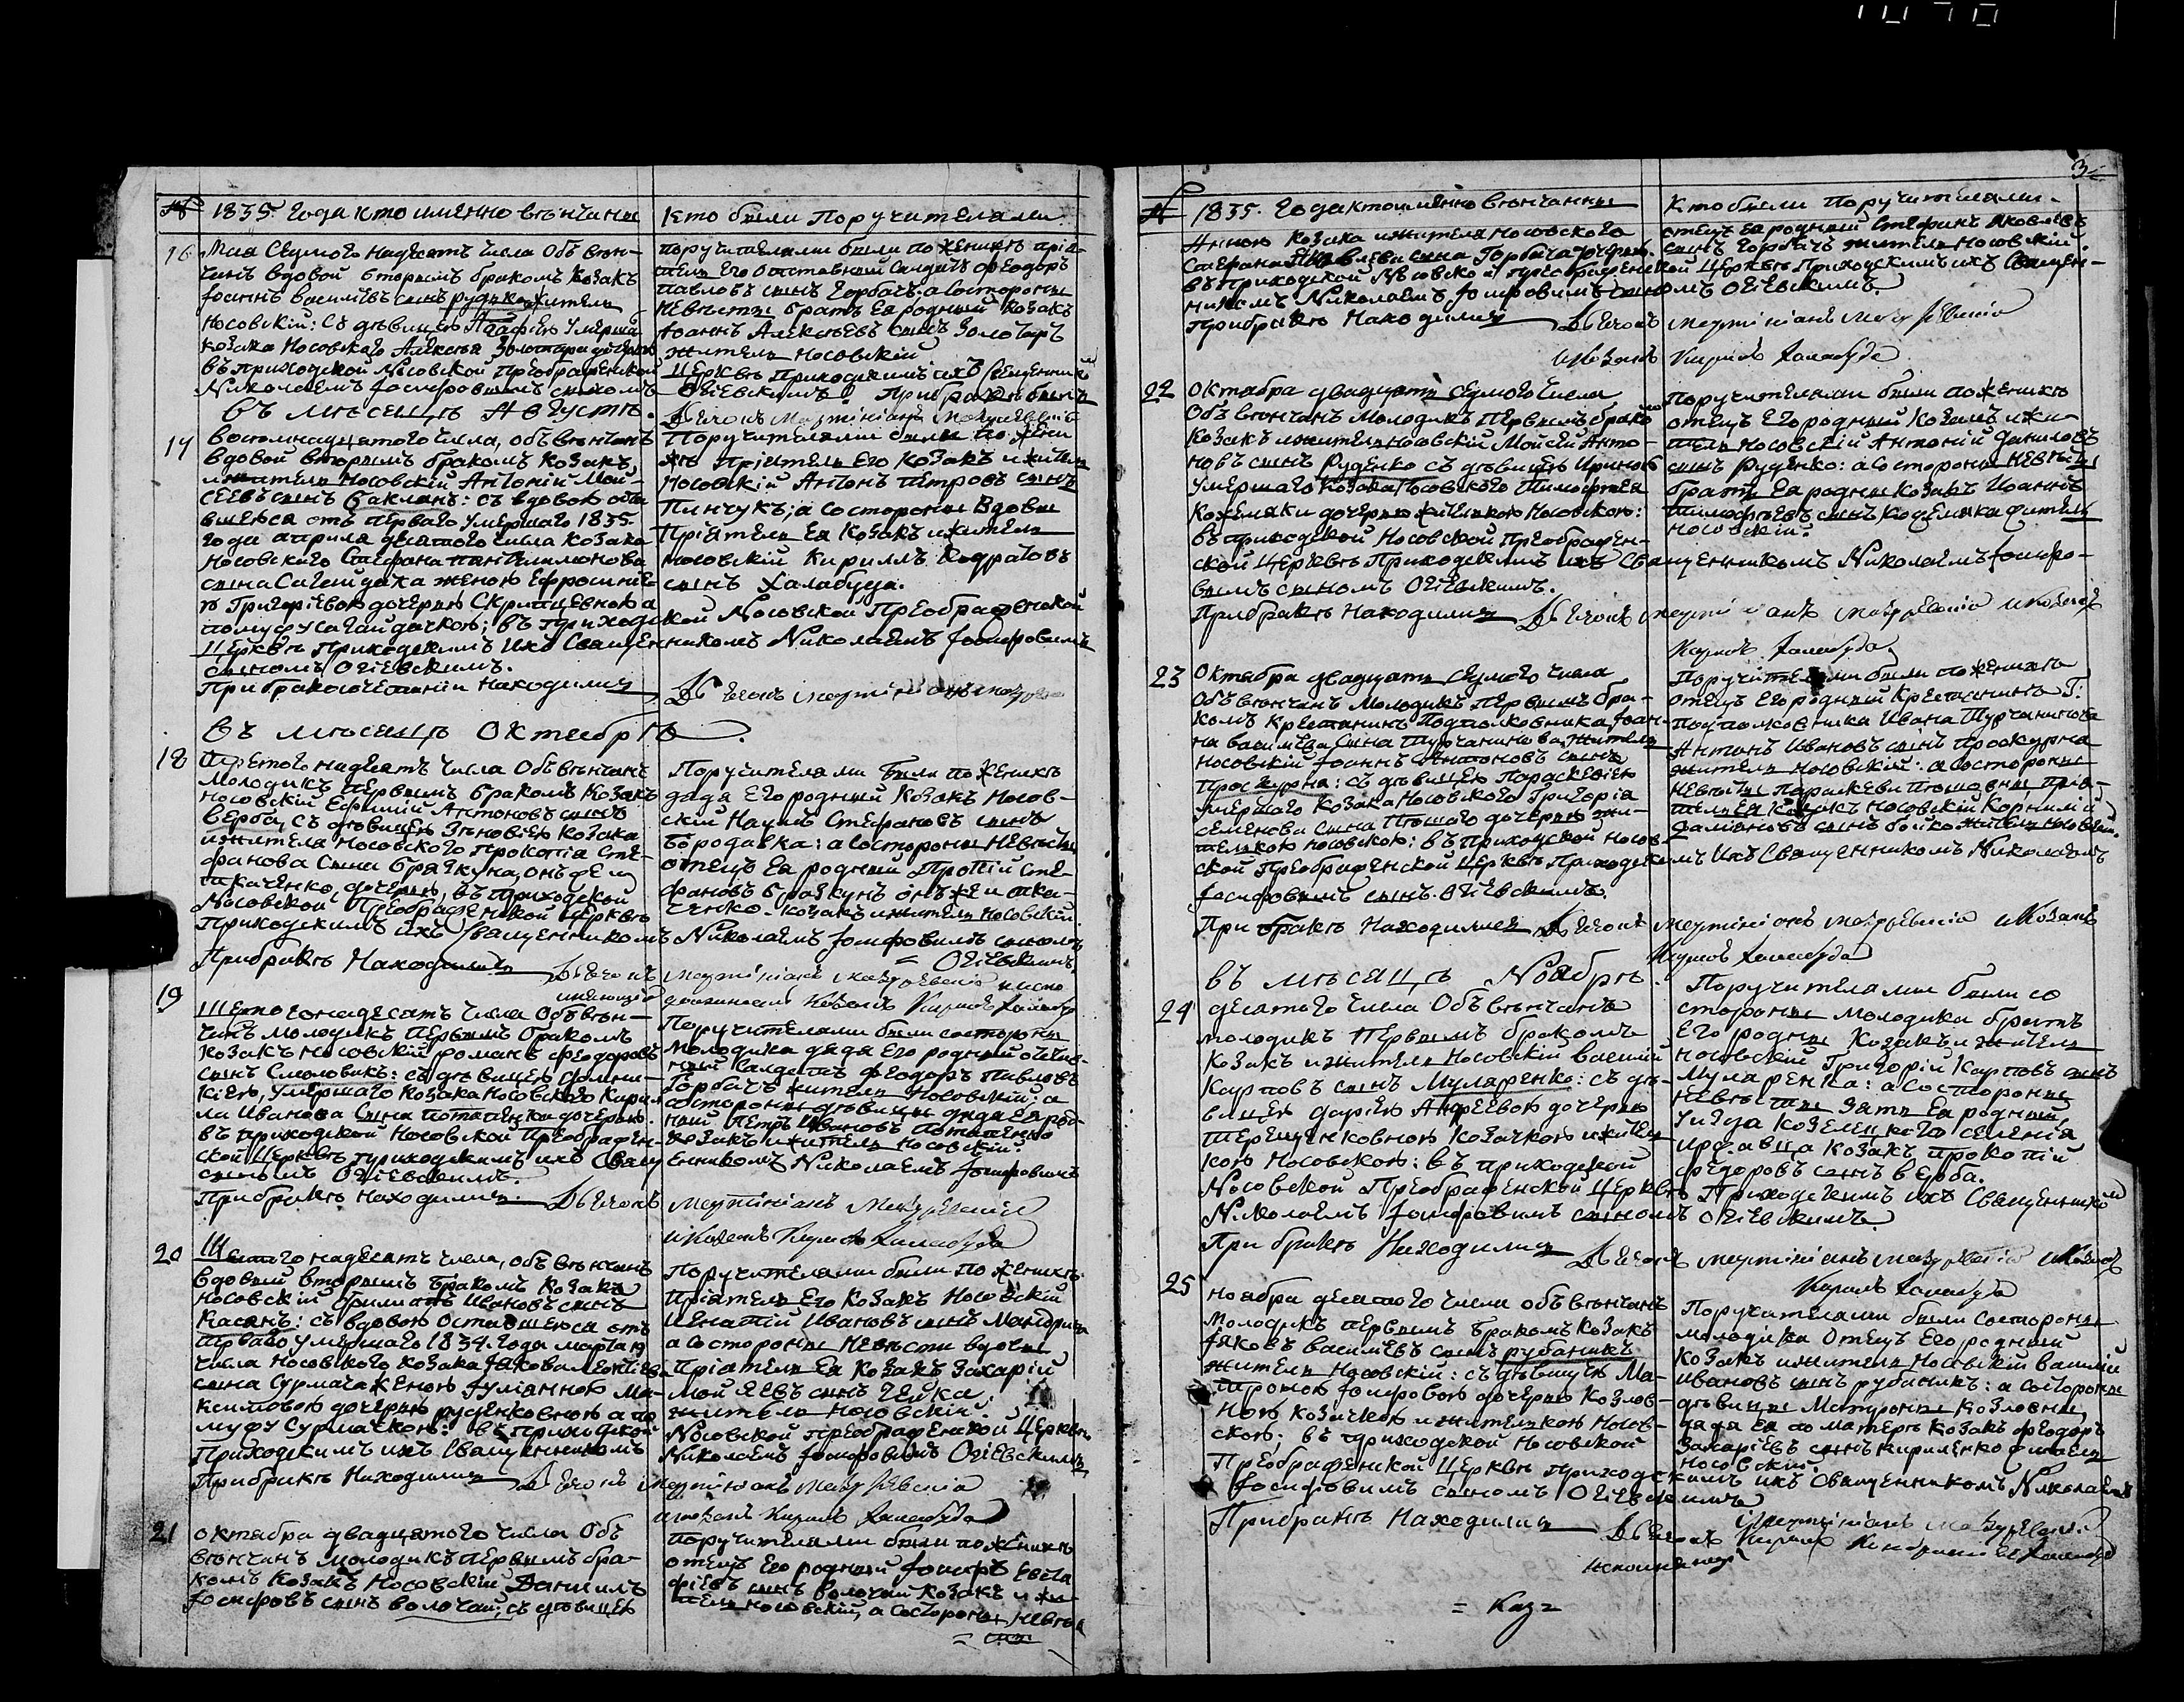 № 1835. года кто именно венчаны
Кто были Поручителями
16 Мая Седмого надесять числа Объ венъ-
чанъ вдовой вторымъ бракомъ козакъ
Іоаннъ Василіевъ сынъ рудько житель
Носовскій: съ девицею Агафіею Умерша
козака Носовскаго Алексея Золотара дочерью
въ приходской Носовской Преображенской
Николаемъ Іосифовымъ сыномъ
поручителями были по жениху прія-
тель Его отставный Салдатъ Феодоръ
Павловъ сынъ Горбачъ: а состороны
Невесты братъ Ея родный козакъ
Іоаннъ Алексеевъ сынъ Золотаръ
житель Носовскій
Церкве Приходскимъ ихъ Священникомъ
Огіевскимъ. При браке были
въ месяце Августе.
Дьячокъ
17 восемнадцатого числа, объ венчанъ
вдовой вторымъ бракомъ козакъ
и житель Носовскій Антоній Мой-
сеевъ сынъ бакланъ: съ вдовою оста
вшеюся отъ перваго умершаго 1835
года априля десятого числа козака
Носовского Стефана Пантелимонова
сына Сагайдака женою Ефросиніе-
ю Григоріевою дочерью Скрипцевною а
по мужу Сагайдачкою; въ приходс
Церкве Приходскимъ Ихъ Священ
сыномъ Огіевскимъ.
При бракосочетаніи находились
Поручителями были по жени
хе Пріятель Его Козакъ и житель
Носовскій Антонъ Петровъ сынъ
Пинчукъ; а состороны Вдовы
Пріятель Ея козакъ и житель
Носовскій Кириллъ Кодратовъ
сынъ Халабуда.
кой Носовской Преображенской
никомъ Николаемъ Іосифовымъ
Дьячокъ
въ месяце Октябре
18 Третого надесять числа Объ венчанъ
Молодикъ Первымъ бракомъ Козакъ
Носовскій Ефимій Антоновъ сынъ
Верба, съ девицею Зеновіею козака
и жителя Носовского Прокопія Сте-
фанова сына браткуна, онъ же и
ткаченко, дочерью, въ приходской
Носовской Преображенской церкве
Приходскимъ ихъ Священникомъ
При браке Находились
Поручителями были по жениху
дядя Его родный Козакъ Носов-
скій Наумъ Стефановъ сынъ
Бородавка: а состороны Невесты
отецъ Ея родный Стe-
фановъ онъ же и тка-
ченко козакъ и житель Носовскій.
Николаемъ Іосифовымъ сыномъ
= Огіевскимъ
Дьячокъ
козакъ Кирилъ Халабуда
19 Шестогонадесять числа Объ вен-
чанъ Молодикъ Первымъ бракомъ
козакъ Носовскій романъ Феодоровъ
сынъ Смоловикъ: съ девицею Домни-
кіею, умершаго козака Носовского Кирил
ла Иванова сына потапенка дочерью.
въ приходской Носовской Преображен-
ской Церкве приходскимъ ихъ Свящ
сыномъ Огіевскимъ.
При браке находились.
Поручителями были состороны
Молодика дядя Его родный отстав-
ный Салдатъ Феодоръ Павловъ
Горбачъ житель Носовскій: а
состороны девицы дядя Ея род-
ный Петръ Ивановъ Потапенко
козакъ и житель Носовскій.
енникомъ Николаемъ Іосифовымъ
Дьячокъ
и козакъ Кирилъ Халабуда
20 Шестого надесять числа, объ венчанъ
вдовый вторымъ бракомъ козакъ
Носовскій Филипъ Ивановъ сынъ
Касянъ: съ вдовою оставшеюся отъ
перваго умершаго 1834. года марта 19
числа Носовского козака Іакова Леонтіева
сына Сурмача женою Іуліанною Ма-
ксимовою дочерью руденковною а по
мужу Сурмачкою: въ приходской
Приходскимъ ихъ Священникомъ
При браке Находились
Поручителями были по жениху
Пріятель Его Козакъ Носовскій
Игнатій Ивановъ сынъ
а состороны Невесты вдовы
Пріятель Ея Козакъ Захарій
Мойсеевъ сынъ
житель Носовскій.
Носовской Преображенской Церкве
Николаемъ Іосифовымъ Огіевскимъ
Дьячокъ
и козакъ Кирилъ Халабуда
21 октября двадцятого числа Объ
венчанъ молодикъ первымъ бра-
комъ козакъ Носовскій Даниилъ
Іосифовъ сынъ Волочай, съ девицею
поручителями были по жениху
отецъ Его родный Іосифъ Евста
фіевъ сынъ Волочай козакъ и жи-
тель Носовскій, а состороны Невес
3
№ 1835. года кто именно венчанны
Кто были Поручителями.
Анною козака и жителя Носовского
Стефана сына Горбача дочерью
въ приходской Носовской Преображенской Церкве Приходскимъ ихъ Священ-
никомъ Николаемъ Іосифовымъ сыномъ Огіевскимъ.
При браке Находились Дьячокъ
и козакъ Кирилъ Халабуда
отецъ Ея родный Стефанъ Яковлевъ
сынъ Горбачъ житель Носовскій.
22 Октября двадцять седмого числа
Объ венчанъ Молодикъ Первымъ бракомъ
Козакъ и житель Носовскій Мойсей Анто-
новъ сынъ Руденко съ девицею Ириною
Умершаго Козака Носовского Тимофея
Кожемяки дочерью жителкою Носовскою:
въ приходской Носовской Преображен-
ской Церкве Приходскимъ ихъ Священникомъ Николаемъ Іосифо-
вымъ сыномъ Огіевскимъ.
При браке Находились Дьячокъ и козакъ
Кирилъ Халабуда
Поручителями были по жениху
отецъ Его родный Козакъ и жи-
тель Носовскій Антоній Даниловъ
сынъ Руденко: а состороны Невесты
братъ Ея родный Козакъ Иоаннъ
Тимофеевъ сынъ Кожемяка житель
Носовскій.
23 Октября двадцять Седмого числа
Объ венчанъ Молодикъ Первымъ бра-
комъ Крестянинъ Подполковника Іоан-
на Василіева Сына Турчанинова житель
Носовскій Іоаннъ Антоновъ сынъ
Проскурня: съ девицею Параскевіею
Умершаго Козака Носовского Григорія
Семенова Сына дочерью жи-
телкою Носовскою: въ Приходской Носов-
ской Преображенской Церкве Приходскимъ Ихъ Священникомъ Николаемъ
Іосифовымъ сынъ. Огіевскимъ.
При браке Находились Дьячокъ и Козакъ
Кирилъ Халабуда
Поручителями были по жениху
отецъ Его родный Крестянинъ Г:
подполковника Ивана Турчанинова
Антонъ Ивановъ сынъ Проскурня
житель Носовскій: а состороны
Невесты Параскевы прія-
тель Ея Козакъ Носовскій Корнилій
сынъ бойко житель Носовскій.
въ месяце Ноябре.
24 десятого числа Объ венчанъ
молодикъ Первымъ бракомъ
Козакъ и житель Носовскій Василій
Карповъ сынъ Муларенко: съ де-
вицею Даріею Андреевою дочерью
Терещенковною Козачкою и жител-
кою Носовскою: въ приходской
Носовской Преображенской Церкве Приходскимъ ихъ Священникомъ
Николаемъ Іосифовымъ сыномъ Огіевскимъ.
При браке Находились Дьячокъ и Козакъ
Кирилъ Халабуда
Поручителями были со
стороны Молодика братъ
Его родный Козакъ и житель
Носовскій Григорій Карповъ сынъ
Муларенка: а состороны
Невесты Зять Ея родный
Уезда Козелецкого селенія
Иржавца Козакъ Прокопій
Федоровъ сынъ Верба.
25 Ноября десятого числа объ венчанъ
Молодикъ первымъ бракомъ Козакъ
Іаковъ Василіевъ сынъ рубаникъ
житель Носовскій: съ девицею Ма-
троною Іосифовою дочерью Козлов-
ною козачкою и жителкою Носов-
скою; въ приходской Носовской
Преображенской Церкве приходскимъ ихъ Священникомъ Николаемъ
Іосифовымъ сыномъ Огіевскимъ
При браке Находились
Дьячокъ
Поручителями были состороны
молодика Отецъ Его родный
Козакъ и житель Носовскій Василій
Ивановъ сынъ рубаникъ: а состороны
девицы Матроны Козловны,
дядя Ея по матери Козакъ Феодоръ
Захаріевъ сынъ Кириленко житель
Носовскій.